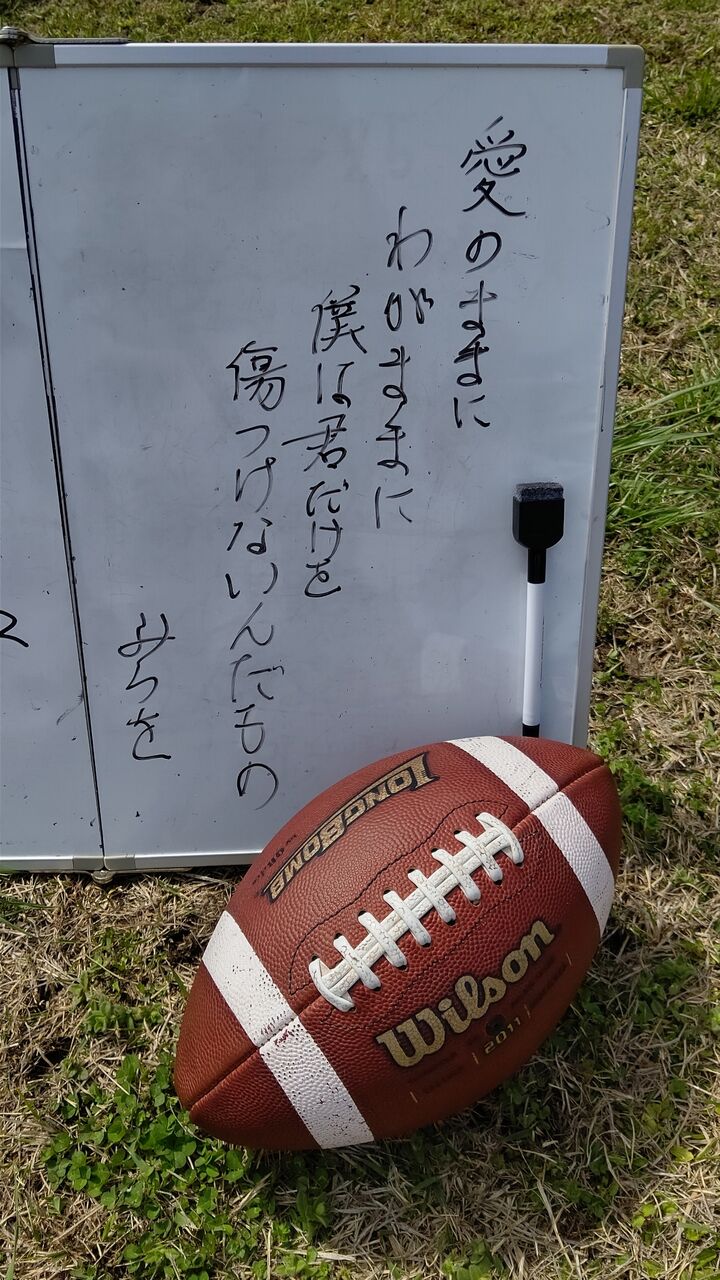 愛のままに
わがままに
僕は君だけを
傷つけないんだもの
みちを
2
LONGBOMB
Wilson
2011